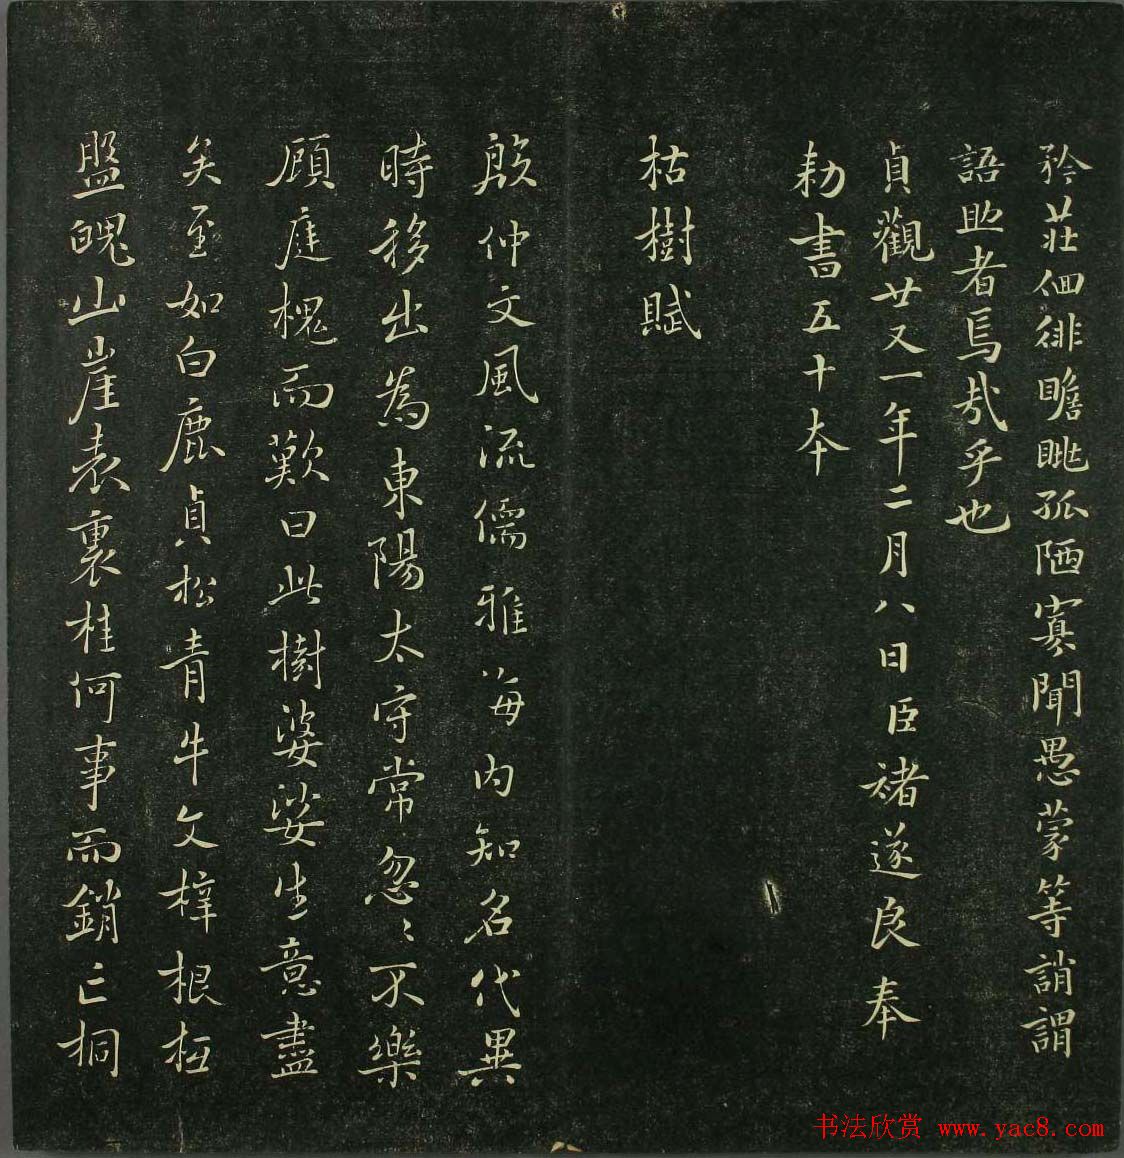 矜莊佪徘瞻眺孤陋寡聞愚蒙等誚謂
語助者焉哉乎也
貞觀廿又一年二月八日臣褚遂良奉
勑書五十本
枯樹賦
殷仲文風流儒雅海内知名代異
時移出為東陽太守常忽〻不樂
顧庭槐而歎曰此樹婆娑生意盡
矣至如白鹿貞松青牛文梓根柢
盤魄山崖表裏桂何事而銷亡桐
书法欣赏 www.yac8.com